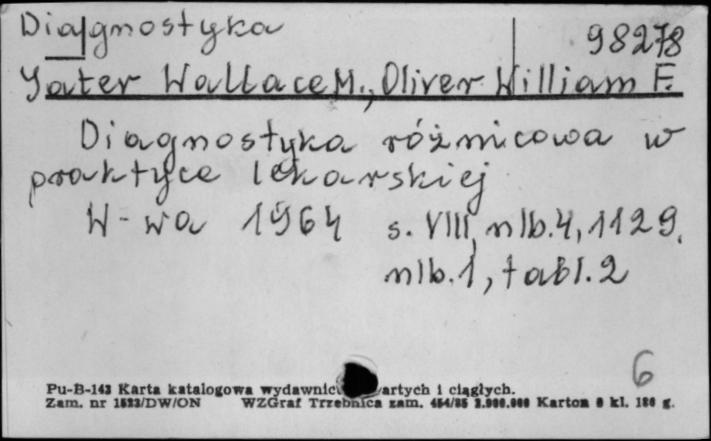 Diagnostyka 98278
Yater Wallace M., Oliver William F.
Diagnostyka różnicowa w
praktyce lekarskiej
W-wa 1964 s. VIII, nlb. 4, 1129,
nlb. 1, tabl. 2
6
Pu-B-143 Karta katalogowa wydawnic artych i ciągłych.
Zam. nr 1523/DW/ON WZGraf Trzebnica zam. Karton kl. 180 g.